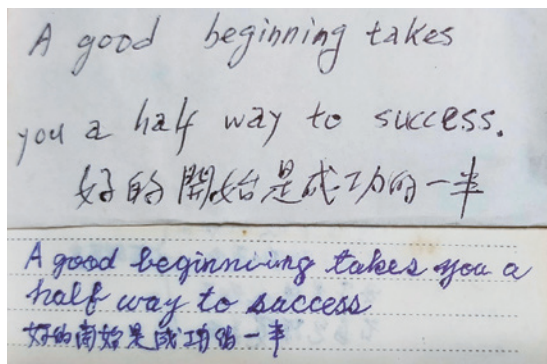 A good beginning takes
you a half way to success.
好的開始是成功的一半
A good beginniung takes you a
half way to success
好的開始是成功的一半